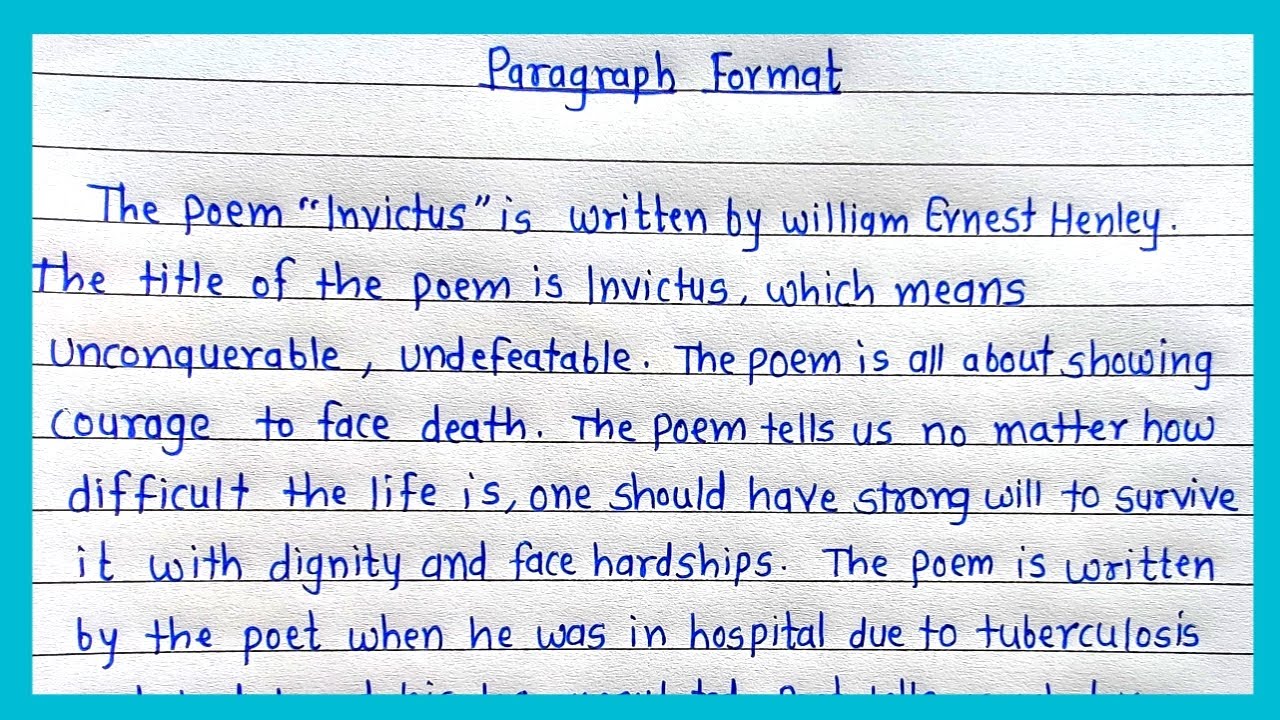 Paragraph Format
The poem "Invictus" is written by william Ernest Henley.
the title of the poem is Invictus, which means
Unconquerable, undefeatable. The poem is all about showing
courage to face death. The poem tells us no matter how
difficult the life is, one should have strong will to survive
it with dignity and face hardships. The poem is written
by the poet when he was in hospital due to tuberculosis